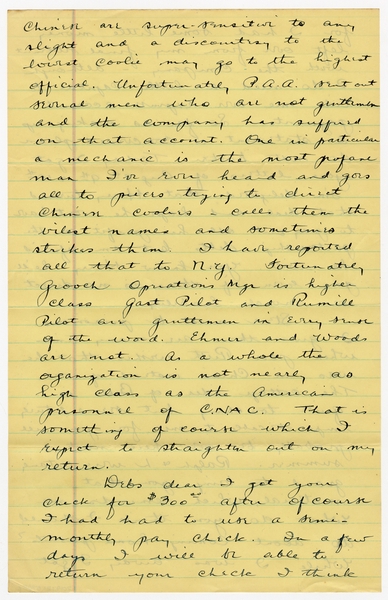 Chinese are super-sensitive to any
slight and a discourtesy to the
lowest coolie may go to the highest
official. Unfortunately P.A.A. sent out
several men who are not gentlemen
and the company has suffered
on that account. One in particular
a mechanic is the most profane
man I've ever heard and goes
all to pieces trying to direct
Chinese coolies - calls them the
vilest names and sometimes
strikes them. I have reported
all that to N.Y. Fortunately
Grooch Operations Mgr is higher
class Gast Pilot and Rumill
Pilot are gentlemen in every sense
of the word. Ehmer and Woods
are not. As a whole the
organization is not nearly as
high class as the American
personnel of C.N.A.C. That is
something of course which I
expect to straighten out on my
return.
Debs dear I got your
check for $300.00 after of course
I had had to use a semi-
monthly pay check. In a few
days I will be able to
return your check I think